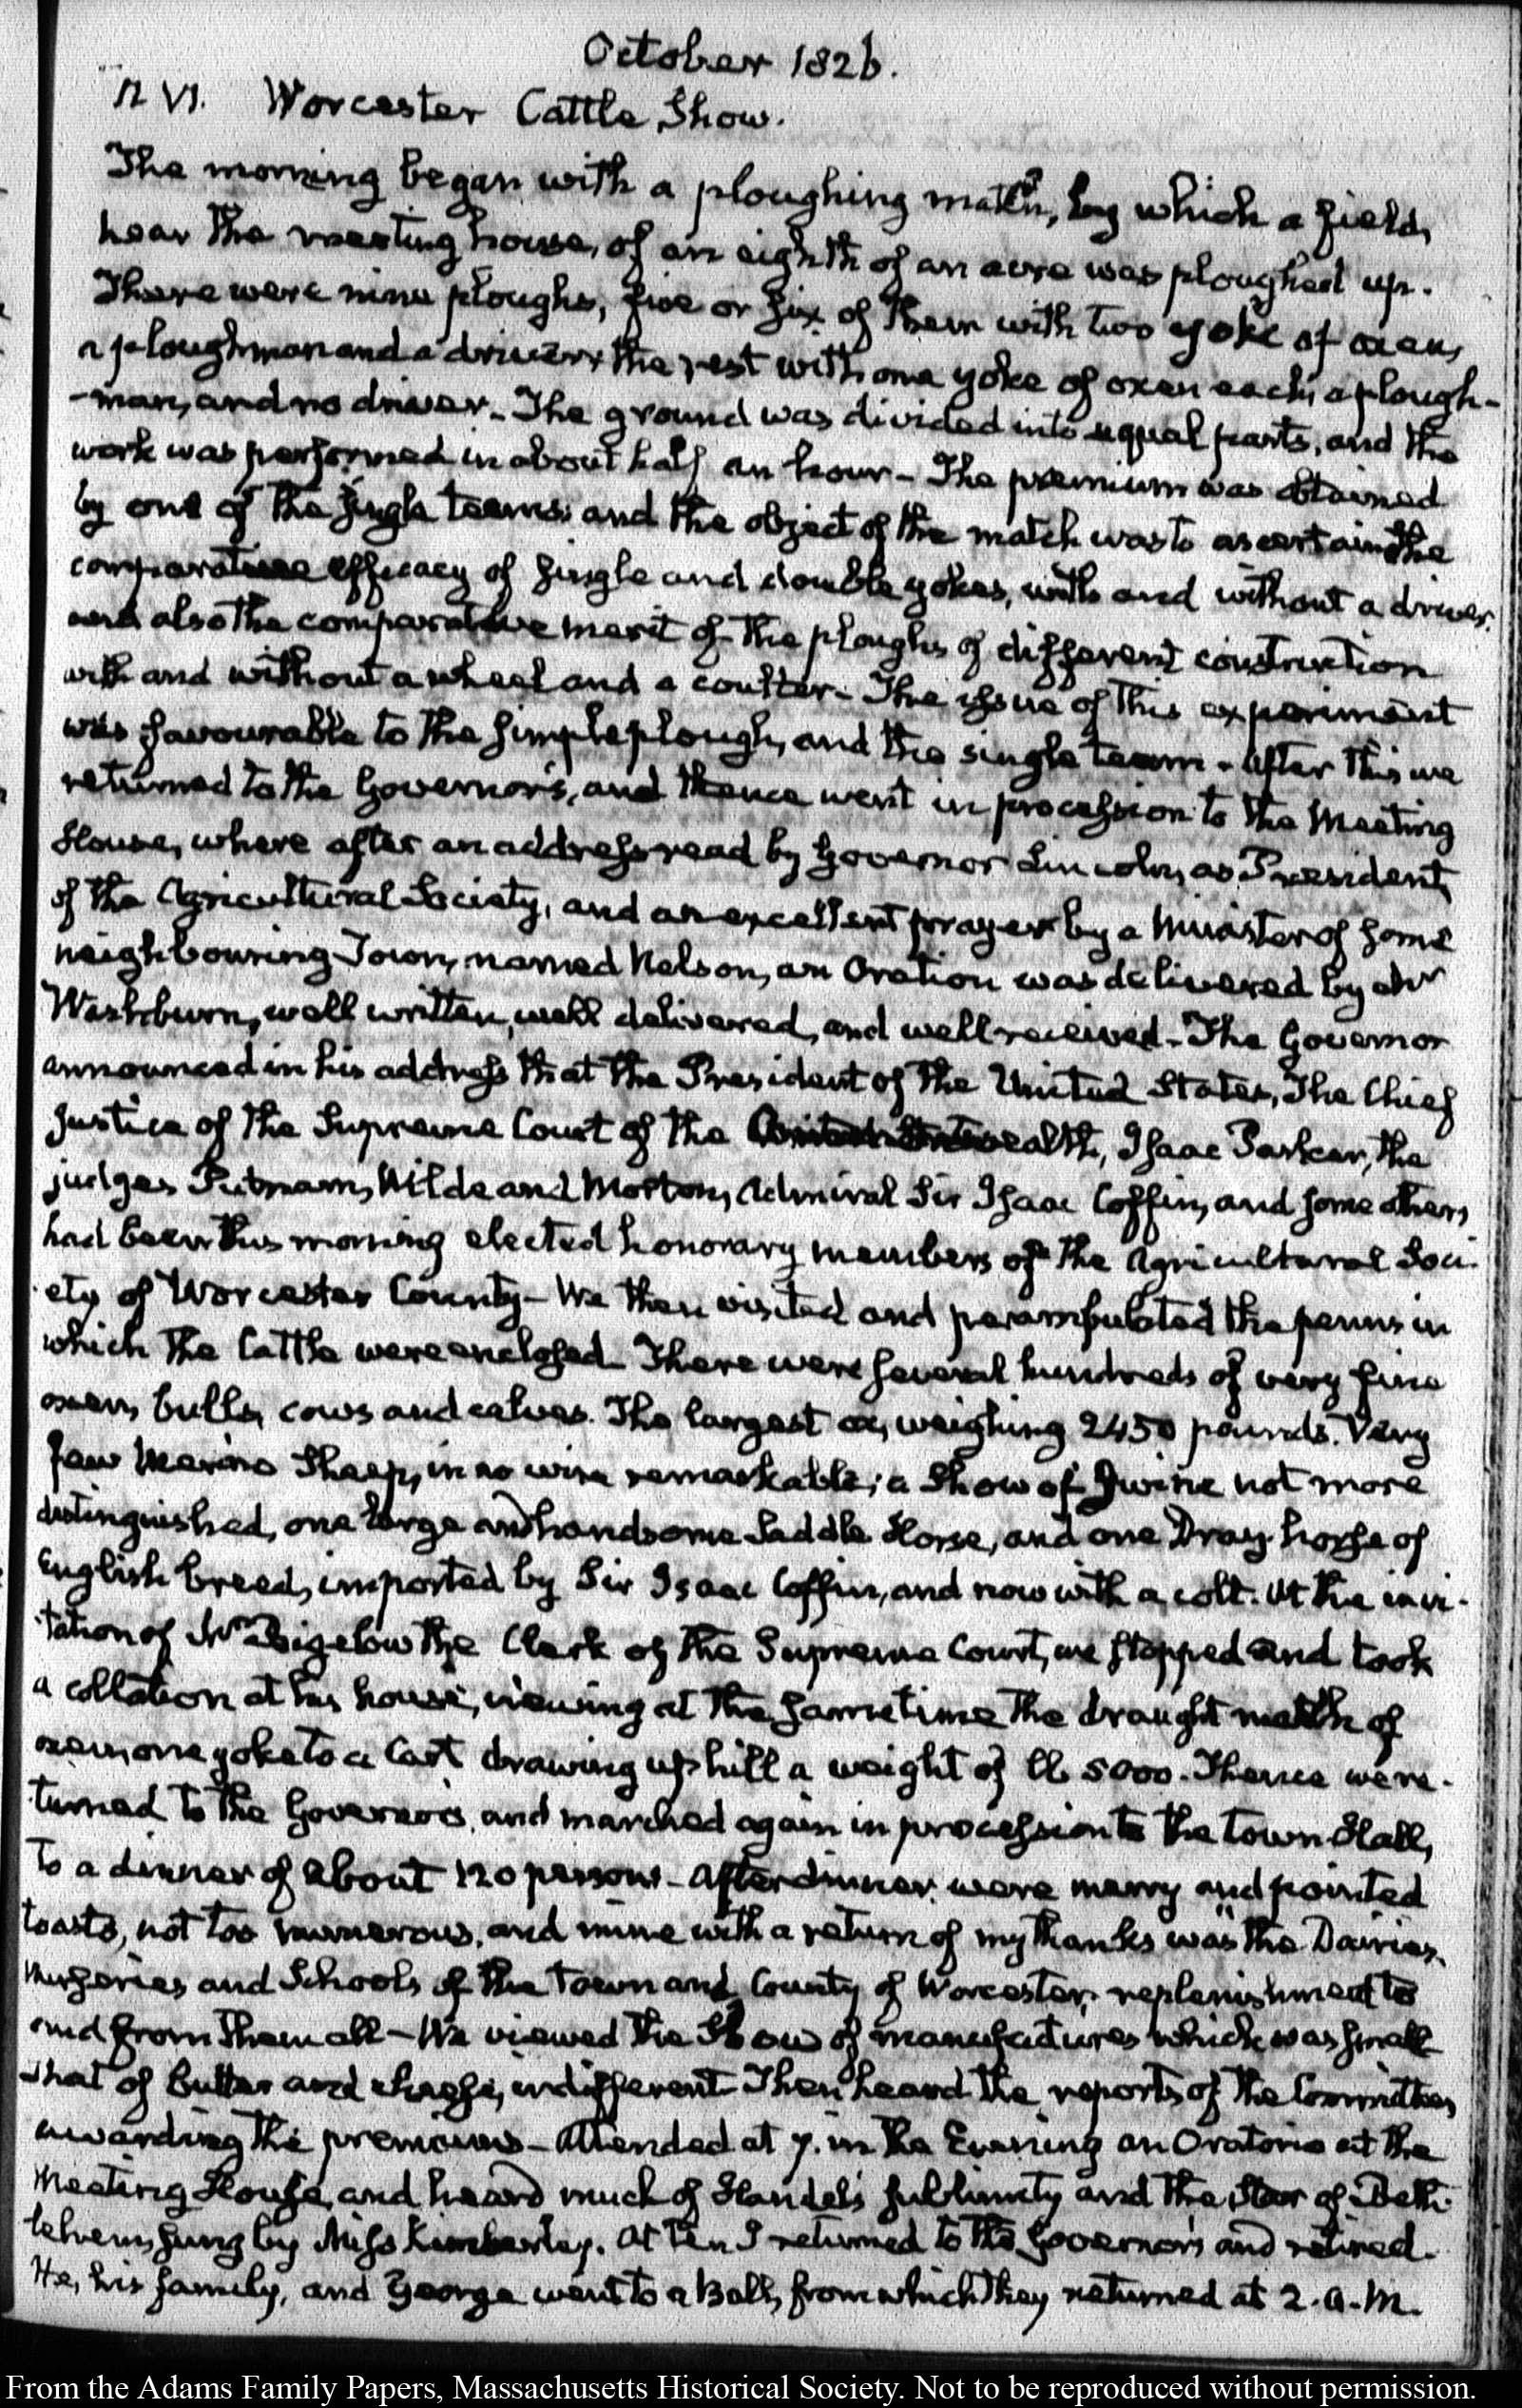 October 1826.
12 VI. Worcester Cattle Show.
The morning began with a ploughing match, by which a field,
near the meeting house, of an eighth of an acre was ploughed up.
There were nine ploughs, five or six of them with two yoke of oxen,
a ploughman and a driver, the rest with one yoke of oxen each, a plough-
-man, and no driver. The ground was divided into equal parts, and the
work was performed in about half an hour. The premium was obtained
by one of the single teams: and the object of the match was to ascertain the
comparative efficacy of single and double yokes, with and without a driver.
and also the comparative merit of the ploughs of different construction
with and without a wheel and a coulter. The issue of this experiment
was favourable to the simple plough, and the single team. After this we
returned to the Governor's, and thence went in procession to the Meeting
House, where after an address read by Governor Lincoln, as President
of the Agricultural Society, and an excellent prayer by a Minister of some
neighbouring Town, named Nelson, an Oration was delivered by Mr
Washburn, well written, well delivered, and well received. The Governor
announced in his address that the President of the United States, The Chief
Justice of the Supreme Court of the Commonwealth, Isaac Parker, the
judges Putnam, Wilde and Morton, Admiral Sir Isaac Coffin, and some others,
had been this morning elected honorary members of the Agricultural Soci-
-ety of Worcester County. We then visited and perambulated the penns in
which the Cattle were enclosed. There were several hundreds of very fine
oxen, bulls, cows and calves. The largest ox, weighing 2450 pounds. Very
few Merino Sheep, in no wise remarkable; a Show of Swine not more
distinguished, one large and handsome Saddle Horse, and one Dray-horse of
English breed, imported by Sir Isaac Coffin, and now with a colt. At the invi-
-tation of Mr Bigelow the Clerk of the Supreme Court, we stopped and took
a collation at his house, viewing at the same time the draught match of
oxen, one yoke to a Cart drawing up hill a weight of lb 5000. Thence we re-
-turned to the Governor's, and marched again in procession to the Town Hall,
to a dinner of about 120 persons. After dinner were merry and pointed
toasts, not too numerous, and mine with a return of my thanks was "the Dairies,
Nurseries and Schools of the Town and County of Worcester, replenishment to
and from them all — We viewed the Show of manufactures which was small
that of butter and cheese, indifferent. Then heard the reports of the Committees
awarding the premiums — Attended at 7. in the Evening an Oratorio at the
Meeting House, and heard much of Handel's sublimity and the Star of Beth-
lehem, sung by Miss Kimberley. At ten I returned to the Governor's and retired.
He, his family, and George went to a Ball, from which they returned at 2. A.M.
From the Adams Family Papers, Massachusetts Historical Society. Not to be reproduced without permission.